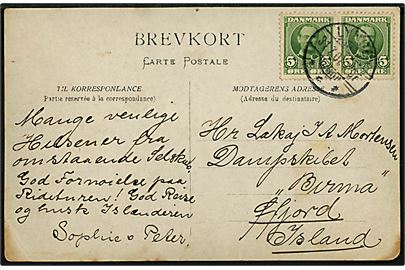 BREVKORT
CARTE POSTALE
DANMARK
DANMARK
5 ØRE 5
5 ØRE 5
TIL KORRESPONLANCE
(Partie reservée à la correspondance)
MODTAGERENS ADRESSE
(Adresse du destinataire)
Mange venlige
Hilsener fra
omstaaende Selskab
God Fornøielse paa
Rideturen! God Reise
og husk Islænderen
Sophie o Peter
Hr Lakaj J A Mortensen
Dampskibet
"Birma"
Øfjord
Island